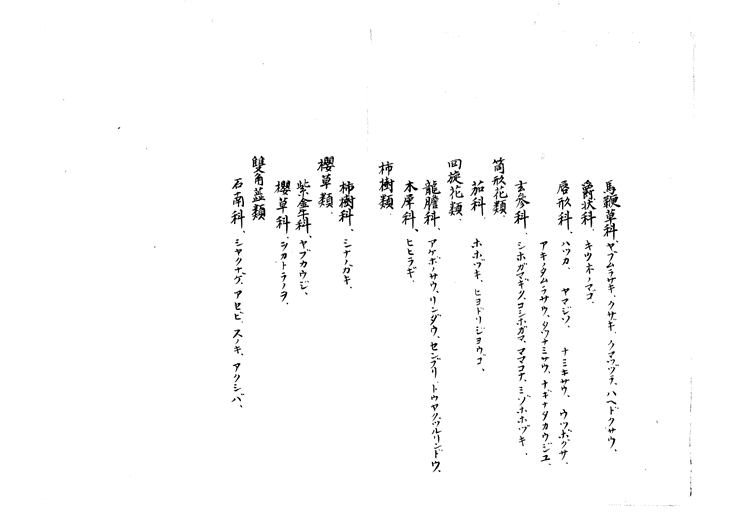 馬鞭草科、ヤブムラサキ、クサギ、クマツヅラ、ハヘドクサウ、
爵状科、キツネノマゴ、
唇形科、ハツカ、ヤマジソ、ナミキサウ、ウツボグサ、
アキノタムラサウ、タツナミサウ、ナギナタカウジユ、
玄参科、シホガマギク、コシホガマ、ママコナ、ミゾホホヅキ、
筒形花類
茄科、ホホヅキ、ヒヨドリジヨウゴ、
回旋花類、
龍膽科、アケボノサウ、リンダウ、センブリ、トウヤク、ツルリンドウ、
木犀科、ヒヒラギ、
柿樹類
柿樹科、シナノガキ、
櫻草類、
紫金牛科、ヤブカウジ、
櫻草科、ヲカトラノヲ、
雙角蕋類
石南科、シャクナゲ、アセビ、スノキ、アクシバ、